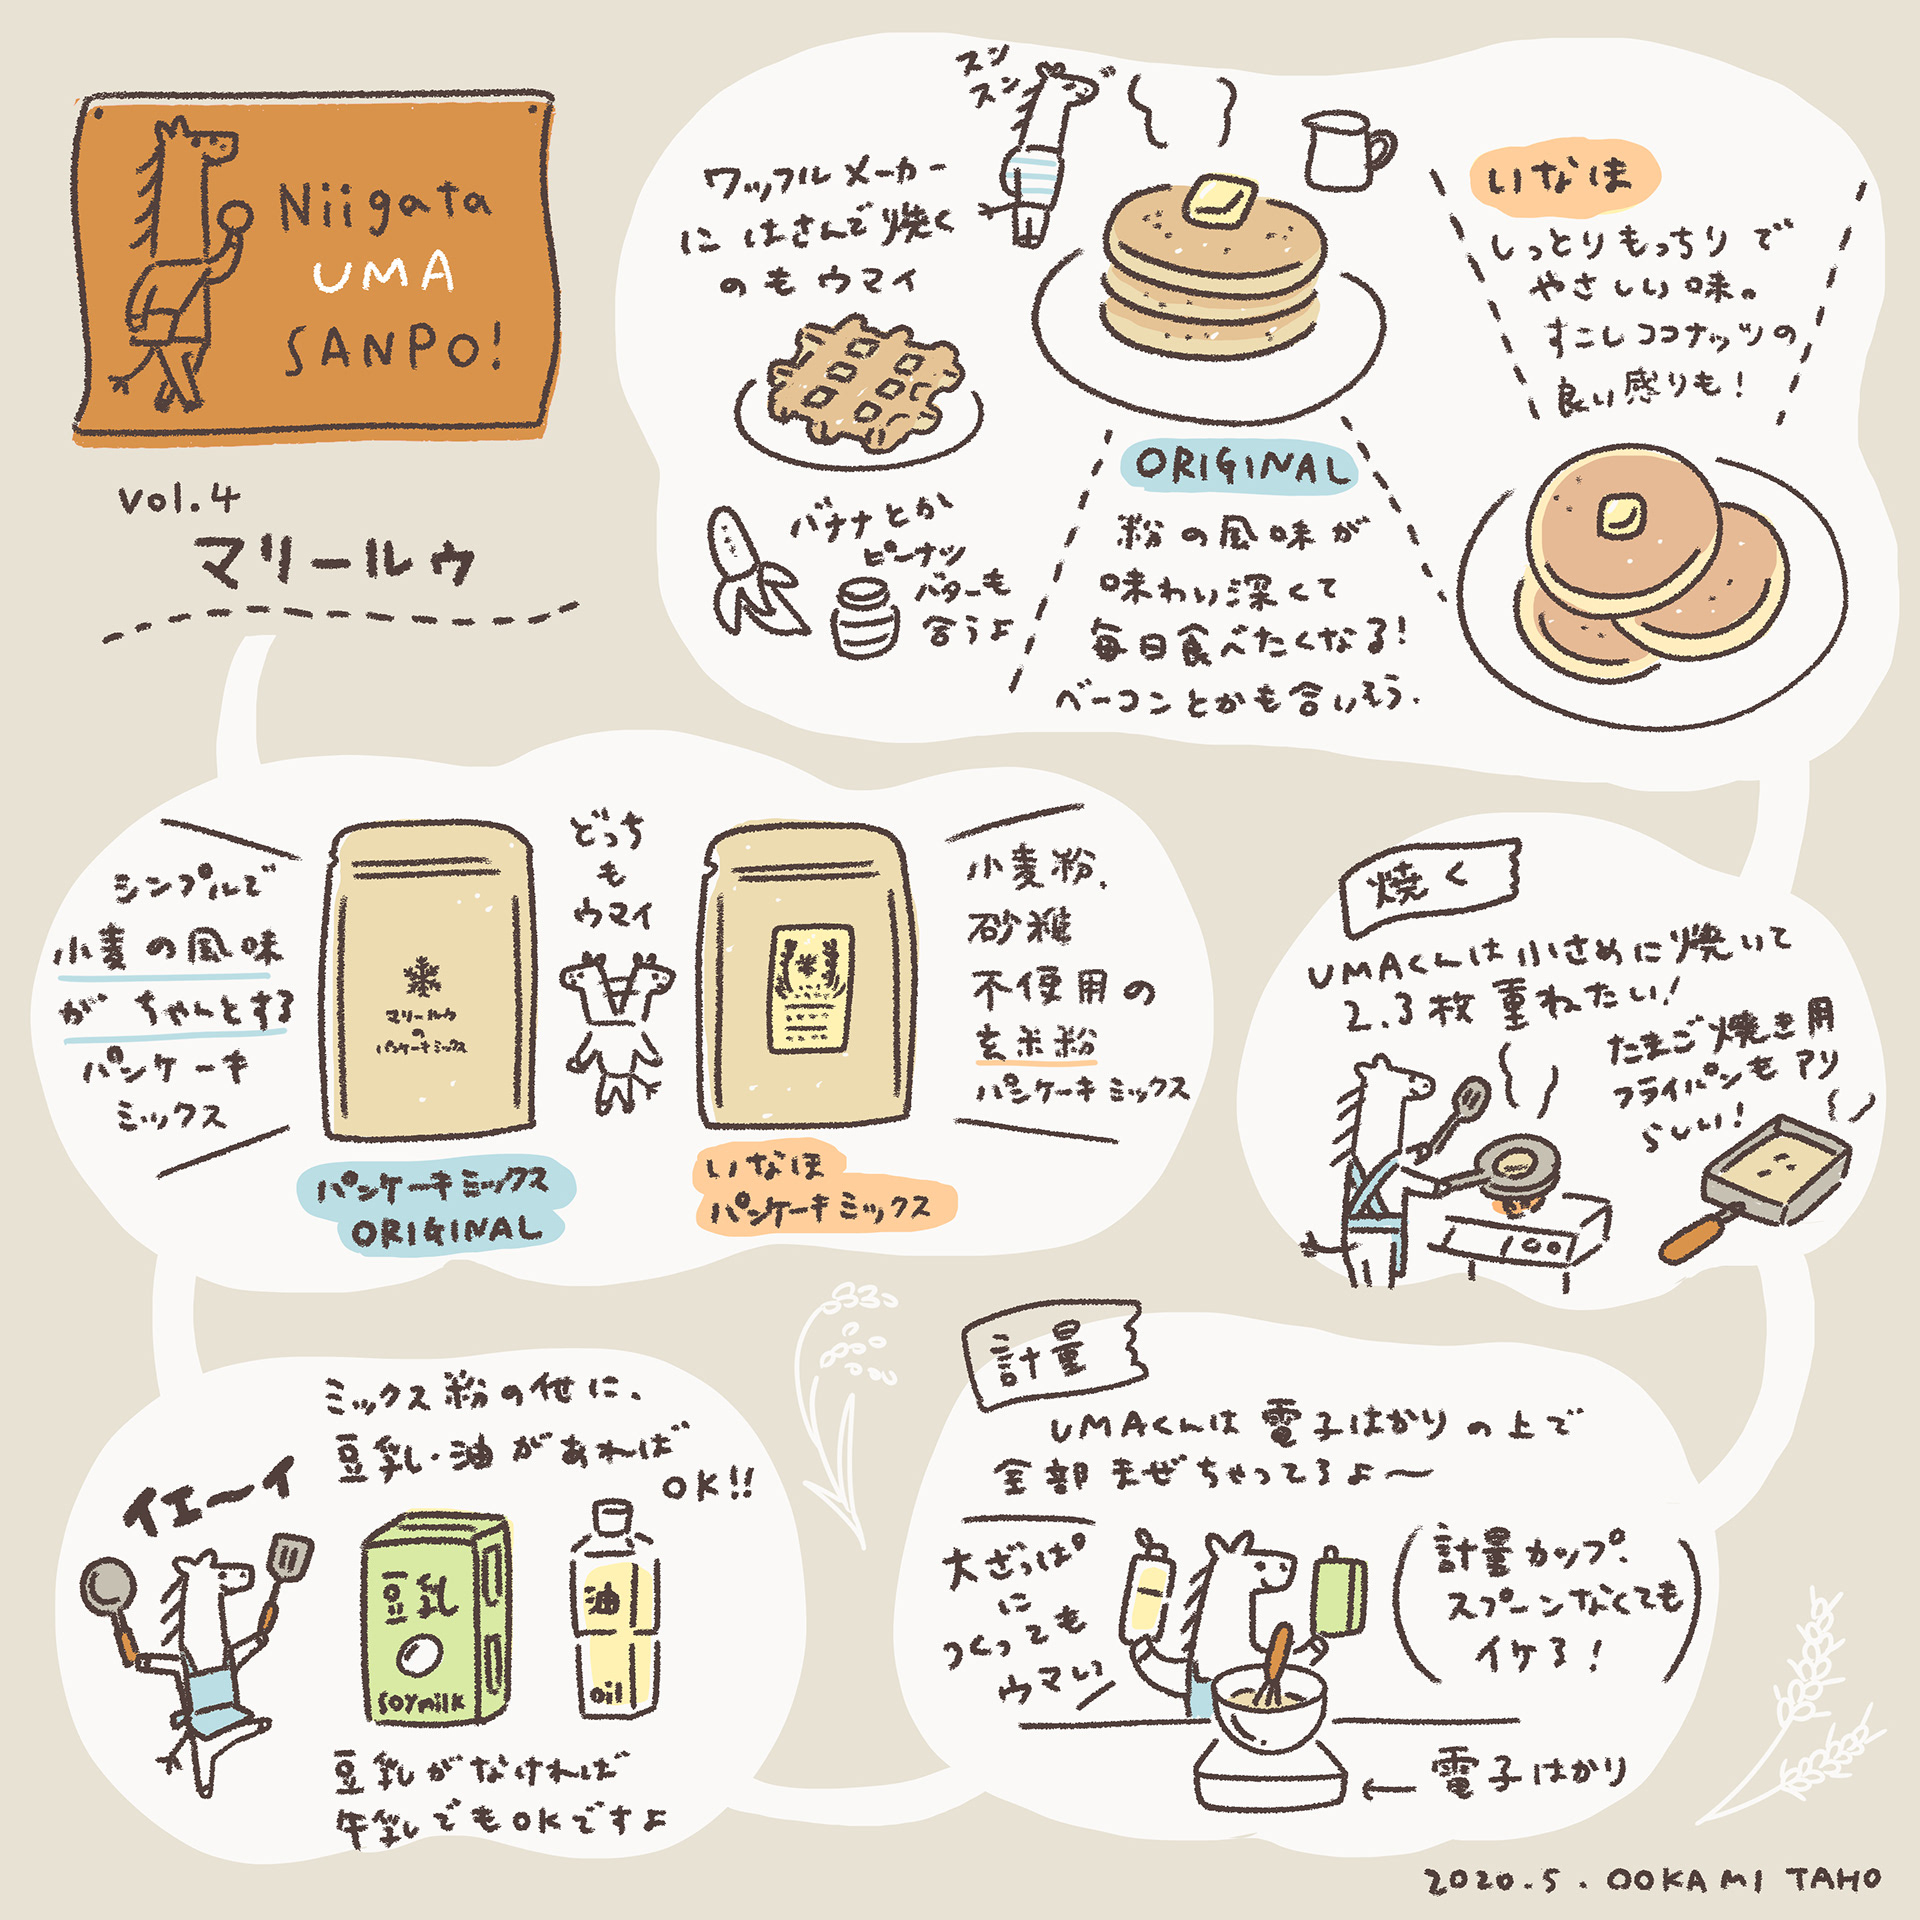 Niigata
UMA
SANPO!
vol.4
マリールゥ
シンプルで
小麦の風味
がちゃんとする
パンケーキ
ミックス
マリールゥ
の
パンケーキミックス
パンケーキミックス
ORIGINAL
どっち
も
ウマイ
いなほ
パンケーキミックス
小麦粉、
砂糖
不使用の
玄米粉
パンケーキミックス
ミックス粉の他に、
豆乳・油があれば
OK!!
イエ〜イ
豆乳
soymilk
油
oil
豆乳がなければ
牛乳でもOKですよ
計量
UMAくんは電子はかりの上で
全部まぜちゃってるよ〜
大ざっぱ
に
つくっても
ウマい
計量カップ、
スプーンなくても
イケる!
←電子はかり
焼く
UMAくんは小さめに焼いて
2.3枚重ねたい!
たまご焼き用
フライパンもアリ
らしい!
スン
スン
ワッフルメーカー
にはさんで焼く
のもウマイ
バナナとか
ピーナッツ
バターも
合うよ
ORIGINAL
粉の風味が
味わい深くて
毎日食べたくなる!
ベーコンとかも合いそう.
いなほ
しっとりもっちりで
やさしい味。
すこしココナッツの
良い感りも!
2020.5.OOKAMI TAHO